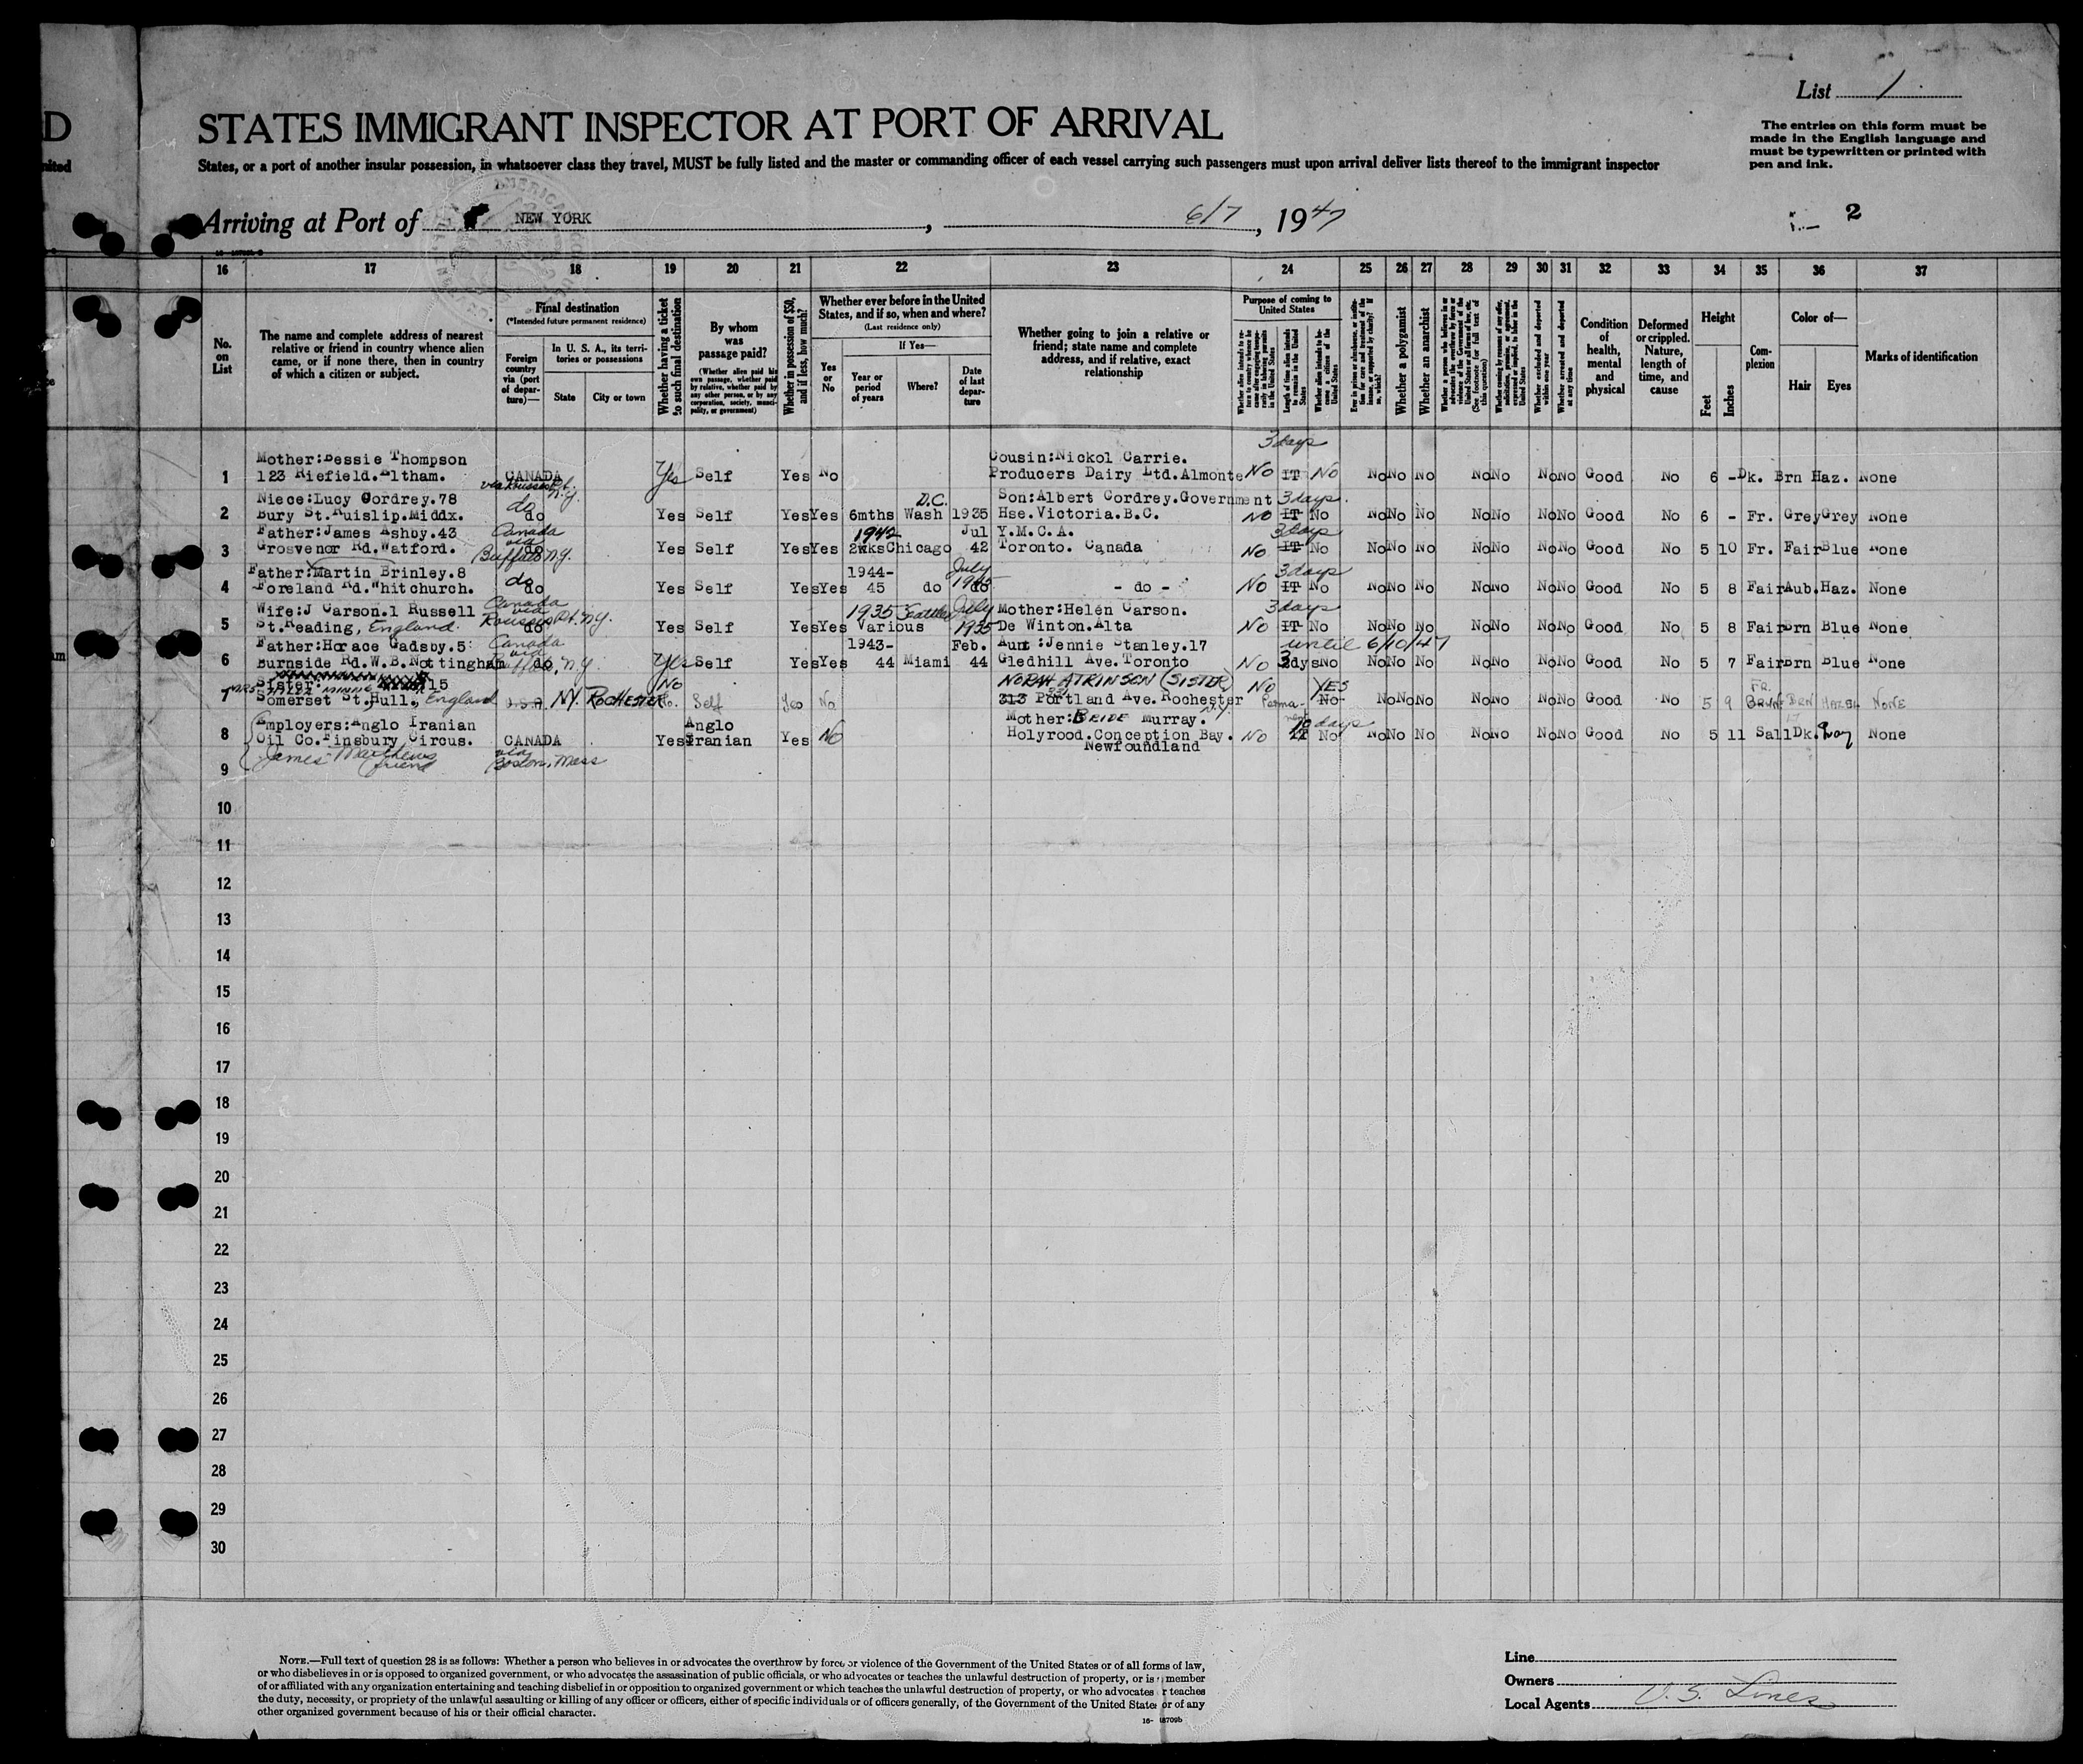 D
nited
List 1
STATES IMMIGRANT INSPECTOR AT PORT OF ARRIVAL
The entries on this form must be
made in the English language and
must be typewritten or printed with
pen and ink.
States, or a port of another insular possession, in whatsoever class they travel, MUST be fully listed and the master or commanding officer of each vessel carrying such passengers must upon arrival deliver lists thereof to the immigrant inspector
Arriving at Port of NEW YORK, 6/7, 1947
2
16 17 18 19 20 21 22 23 24 25 26 27 28 29 30 31 32 33 34 35 36 37
No. on List
The name and complete address of nearest
relative or friend in country whence alien
came, or if none there, then in country
of which a citizen or subject.
Final destination
(*Intended future permanent residence)
Foreign country via (port of departure)—
In U. S. A., its territories or possessions
State
City or town
Whether having a ticket to such final destination
By whom was passage paid?
(Whether alien paid his own passage, whether paid by relative, whether paid by any other person, or by any corporation, society, municipality, or government)
Whether in possession of $50, and if less, how much?
Whether ever before in the United
States, and if so, when and where?
(Last residence only)
If Yes—
Yes or No
Year or period of years
Where?
Date of last departure
Whether going to join a relative or
friend; state name and complete
address, and if relative, exact
relationship
Purpose of coming to United States
Length of time alien intends to remain in the United States
Whether alien intends to become a citizen of the United States
Whether a polygamist
Whether an anarchist
Whether arrested and deported at any time
Condition of health, mental and physical
Deformed or crippled. Nature, length of time, and cause
Height
Feet
Inches
Complexion
Color of—
Hair
Eyes
Marks of identification
3 days
Mother:Bessie Thompson Cousin:Nickol Carrie.
1 123 Riefield.Eltham. CANADA Yes Self Yes No Producers Dairy Ltd.Almonte No IT No No No No No No No No Good No 6 - Dk. Brn Haz. None
via Rouses Pt. N.Y.
Niece:Lucy Cordrey.78 do D.C. Son:Albert Cordrey.Government 3 days.
2 Bury St.Ruislip.Middx. do Yes Self Yes Yes 6mths Wash 1935 Hse.Victoria.B.C. No IT No No No No No No No No Good No 6 - Fr. Grey Grey None
Father:James Ashby.43 Canada via 1942 Jul Y.M.C.A. 3 days
3 Grosvenor Rd.Watford. do Buffalo N.Y. Yes Self Yes Yes 2wks Chicago 42 Toronto. Canada No IT No No No No No No No No Good No 5 10 Fr. Fair Blue None
Father:Martin Brinley.8 do 1944- July 1945 3 days
4 Foreland Rd.Whitchurch. do Yes Self Yes Yes 45 do do - do - No IT No No No No No No No No Good No 5 8 Fair Aub. Haz. None
Wife:J Carson.1 Russell Canada via Rouses Pt. N.Y. 1935 Seattle July Mother:Helen Carson. 3 days
5 St.Reading, England. do Yes Self Yes Yes Various 1935 De Winton.Alta No IT No No No No No No No No Good No 5 8 Fair Brn Blue None
Father:Horace Gadsby.5 Canada via 1943- Feb. Aunt:Jennie Stanley.17 until 6/10/47
6 Burnside Rd.W.B.Nottingham do Buffalo, N.Y. Yes Self Yes Yes 44 Miami 44 Gledhill Ave.Toronto No 3 dys No No No No No No No No Good No 5 7 Fair Brn Blue None
Sister: 15 No NORAH ATKINSON (SISTER) No YES FR.
7 Somerset St.Hull., England U.S.A. NY. ROCHESTER Self Yes No 313 Portland Ave. Rochester N.Y. Permanent No No No No No No No No Good No 5 9 BRN HAZEL NONE
Employers:Anglo Iranian Anglo Mother:BRIDE Murray. 10 days
8 Oil Co.Finsbury Circus. CANADA Yes Iranian Yes No Holyrood.Conception Bay. No IT No No No No No No No No Good No 5 11 Sall Dk. Gray None
Newfoundland
James Matthews via
(friend Boston, Mass
9
10
11
12
13
14
15
16
17
18
19
20
21
22
23
24
25
26
27
28
29
30
NOTE.—Full text of question 28 is as follows: Whether a person who believes in or advocates the overthrow by force or violence of the Government of the United States or of all forms of law,
or who disbelieves in or is opposed to organized government, or who advocates the assassination of public officials, or who advocates or teaches the unlawful destruction of property, or is a member
of or affiliated with any organization entertaining and teaching disbelief in or opposition to organized government or which teaches the unlawful destruction of property, or who advocates or teaches
the duty, necessity, or propriety of the unlawful assaulting or killing of any officer or officers, either of specific individuals or of officers generally, of the Government of the United States or of any
other organized government because of his or their official character.
16-18709b
Line
Owners
Local Agents U. S. Lines